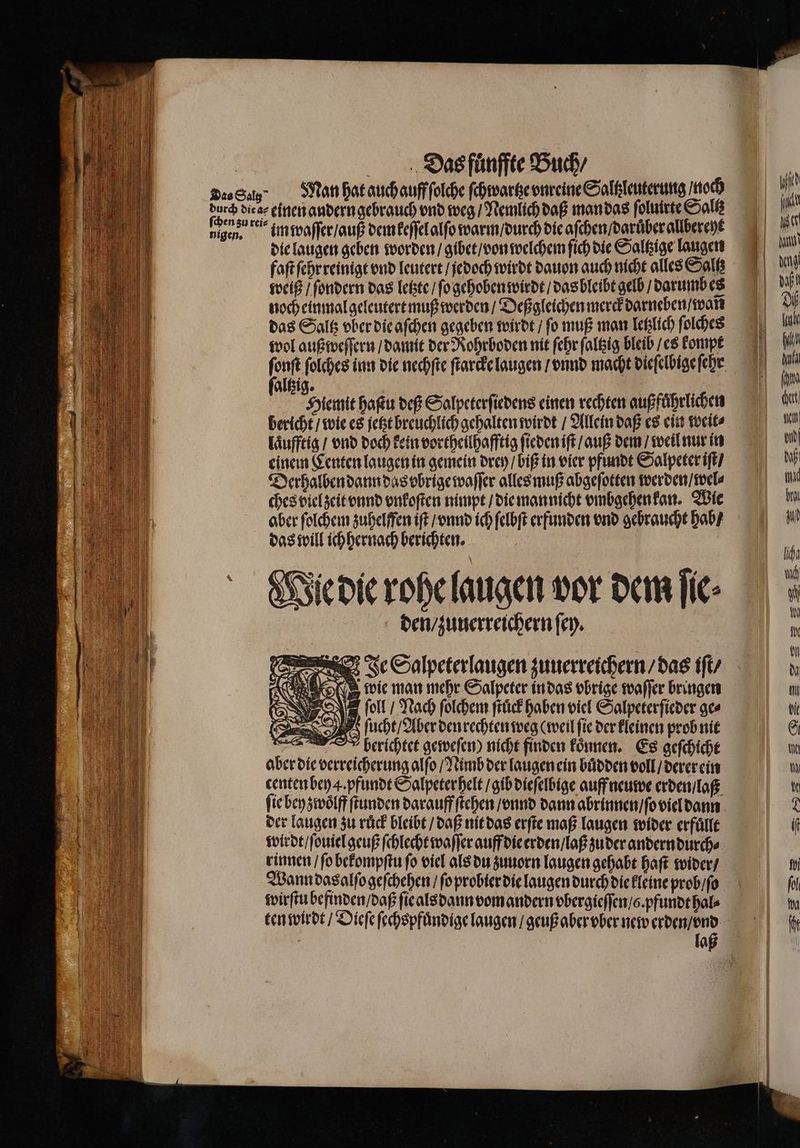 Das fünffte Buch/
Das Saltz
durch die a-
schen zu rei-
nigen.
Man hat auch auff solche schwartze vnreine Saltzleuterung / noch
einen andern gebrauch vnd weg / Nemlich daß man das soluirte Saltz
im wasser/auß dem kessel also warm/durch die aschen/darüber allbereyt
die laugen geben worden / gibet/von welchem sich die Saltzige laugen
fast sehr reinigt vnd leutert / jedoch wirdt dauon auch nicht alles Saltz
weiß / sondern das letzte / so gehoben wirdt / das bleibt gelb / darumb es
noch einmal geleutert muß werden / Deßgleichen merck darneben/wañ
das Saltz vber die aschen gegeben wirdt / so muß man letzlich solches
wol außwessern / damit der Rohrboden nit sehr saltzig bleib / es kompt
sonst solches inn die nechste starcke laugen / vnnd macht dieselbige sehr
saltzig.
Hiemit hastu deß Salpetersiedens einen rechten außführlichen
bericht / wie es jetzt breuchlich gehalten wirdt / Allein daß es ein weit-
läufftig / vnd doch kein vortheilhafftig sieden ist / auß dem / weil nur in
einem Centen laugen in gemein drey / biß in vier pfundt Salpeter ist/
Derhalben dann das vbrige wasser alles muß abgesotten werden/wel-
ches viel zeit vnnd vnkosten nimpt / die man nicht vmbgehen kan. Wie
aber solchem zuhelffen ist / vnnd ich selbst erfunden vnd gebraucht hab/
das will ich hernach berichten.
Wie die rohe laugen vor dem sie-
den/zuuerreichern sey.
DJe Salpeterlaugen zuuerreichern / das ist/
wie man mehr Salpeter in das vbrige wasser bringen
soll / Nach solchem stück haben viel Salpetersieder ge-
sucht/Aber den rechten weg (weil sie der kleinen prob nit
berichtet gewesen) nicht finden können. Es geschicht
aber die verreicherung also / Nimb der laugen ein büdden voll / derer ein
centen bey 4. pfundt Salpeter helt / gib dieselbige auff neuwe erden/laß
sie bey zwölff stunden darauff stehen / vnnd dann abrinnen/so viel dann
der laugen zu rück bleibt / daß nit das erste maß laugen wider erfüllt
wirdt/souiel geuß schlecht wasser auff die erden/laß zu der andern durch-
rinnen / so bekompstu so viel als du zuuorn laugen gehabt hast wider/
Wann das also geschehen / so probier die laugen durch die kleine prob/so
wirstu befinden/daß sie als dann vom andern vbergiessen/6. pfundt hal-
ten wirdt / Diese sechspfündige laugen / geuß aber vber new erden/vnd
laß